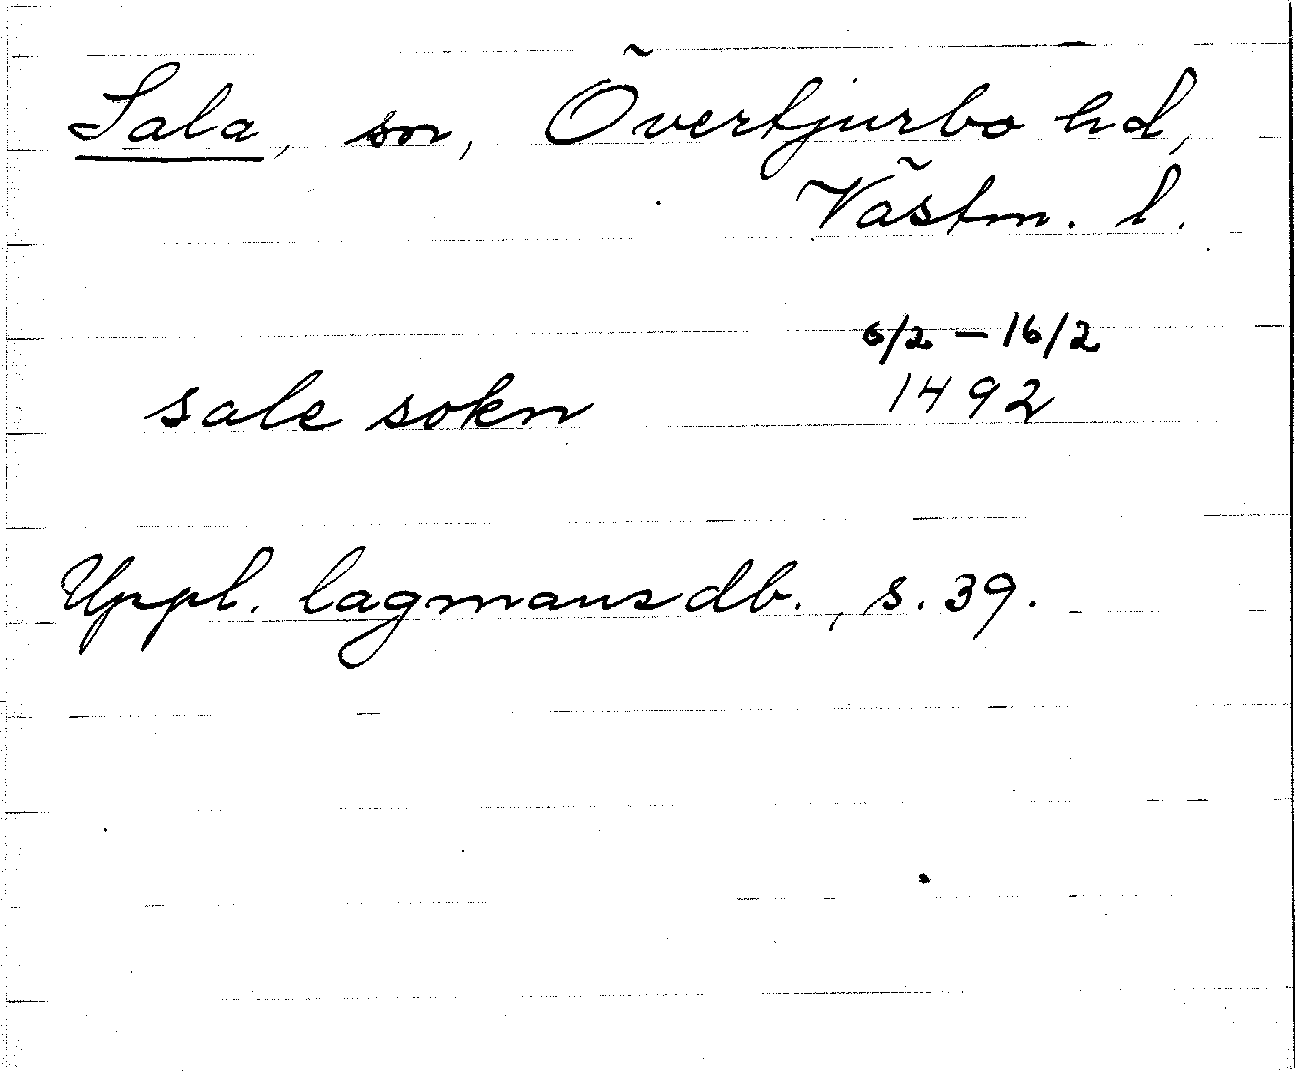 Sala, sn, Övertjurbo hd,
Västm. l.
6/2 – 16/2
sale sokn 1492
Uppl. lagmansdb., s. 39.